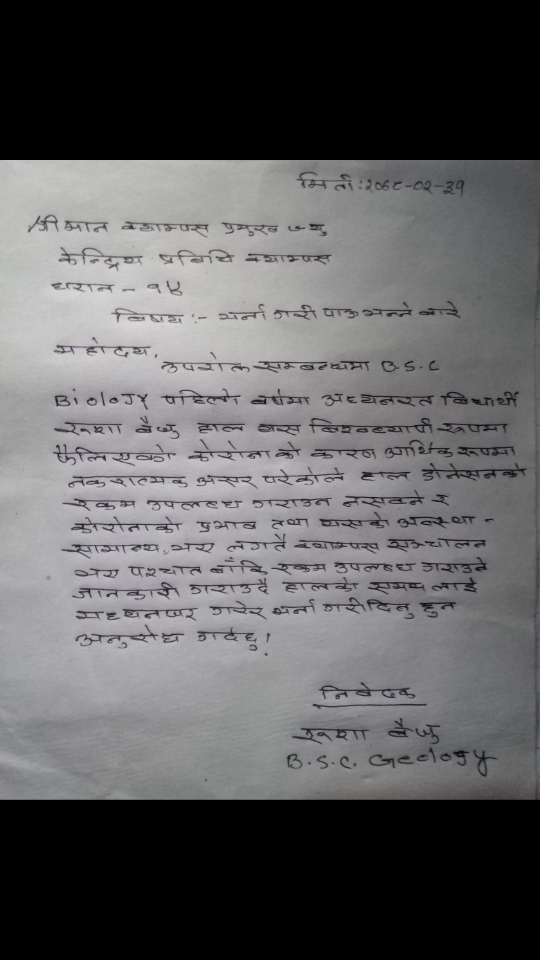 मिती:२०७८-०२-३१
श्रीमान क्याम्पस प्रमुख ज्यु
केन्द्रिय प्रबिधि क्याम्पस
धरान - १४
विषय :- भर्ना गरी पाऊ भन्ने बारे
महोदय,
उपरोक्त सम्बन्धमा B.S.C
Biology पहिलो बर्षमा अध्यनरत बिधार्थी
रूशा बैजु हाल यस बिश्वव्यापी रूपमा
फैलिएको कोरोनाको कारण आर्थिक रूपमा
नकरात्मक असर परेकोले हाल डोनेसनको
रकम उपलब्ध गराउन नसक्ने र
कोरोनाको प्रभाव तथा यसको अवस्था -
सामान्य भए लगतै क्याम्पस सञ्चालन
भए पश्चात बाँकि रकम उपलब्ध गराउने
जानकारी गराउदै हालको समय लाई
मध्यनजर गरेर भर्ना गरीदिनु हुन
अनुरोध गर्दछु!
निबेदक
रूशा बैजु
B.S.C. Geology